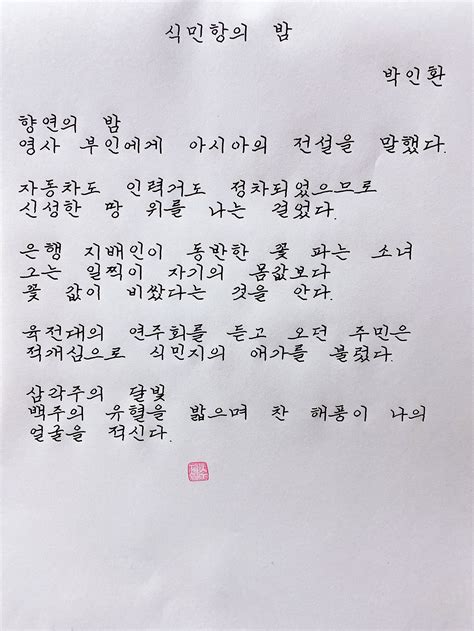 식민항의 밤
박인환
향연의 밤
영사 부인에게 아시아의 전설을 말했다.
자동차도 인력거도 정차되었으므로
신성한 땅 위를 나는 걸었다.
은행 지배인이 동반한 꽃 파는 소녀
그는 일찍이 자기의 몸값보다
꽃 값이 비쌌다는 것을 안다.
육전대의 연주회를 듣고 오던 주민은
적개심으로 식민지의 애가를 불렀다.
삼각주의 달빛
백주의 유혈을 밟으며 찬 해풍이 나의
얼굴을 적신다.